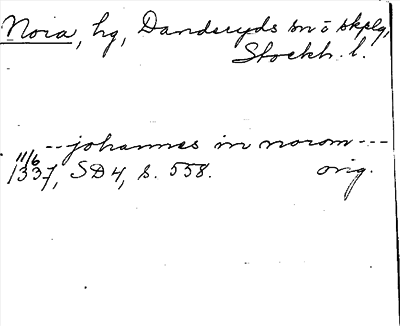 Nora, hg, Danderyds sn o skplg,
Stockh. l.
-- johannes in norom ---
11/6
1337, SD 4, s. 558. orig.